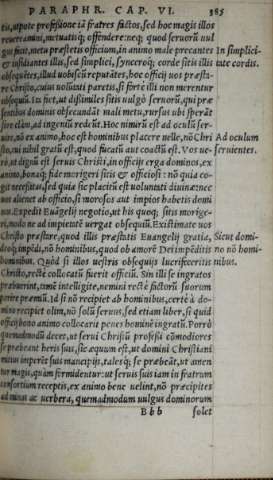 PARAPHR. CAP. VI. 385
tis, utpote professione iã fratres factos, sed hoc magis illos
reuereamini, metuatisq; offendere: neq; quod seruorũ uul
gus facit, metu præstetis officium, in animo male precantes
In simplici-
et insidiantes illis, sed simplici, synceroq; corde sitis illis
tate cordis.
obsequẽtes, illud uobiscũ reputãtes, hoc officij uos præsta-
re Christo, cuius uoluntati paretis, si forte illi non merentur
obsequiũ. Ita fiet, ut dissimiles sitis uulgo seruorũ, qui præ
sentibus dominis obsecundãt mali metu, rursus ubi sperãt
fore clam, ad ingeniũ redeũt. Hoc nimirũ est ad oculũ ser-
uire, nõ ex animo, hoc est hominibus placere uelle, nõ Chri
Ad oculum
sto, cui nihil gratũ est, quod fucatũ aut coactũ est. Vos ue-
seruientes.
rò, ut dignũ est seruis Christi, in officijs erga dominos, ex
animo, bonaq; fide morigeri sitis et officiosi: nõ quia co-
git necessitas, sed quia sic placitũ est uoluntati diuinæ: nec
uos auenet ab officio, si morosos aut impios habetis domi
nos. Expedit Euãgelij negotio, ut his quoq; sitis morige-
ri, modo ne ad impietatẽ uergat obsequiũ. Existimate uos
Christo præstare, quod illis præstatis Euangelij gratia,
Sicut domi-
deoq; impẽdi, nõ hominibus, quod ob amorẽ Dei impẽditis
no nõ homi-
hominibus. Quòd si illos uestris obsequijs lucrifeceritis
nibus.
Christo, recte collocatũ fuerit officiũ. Sin illi se ingratos
præbuerint, tamẽ intelligite, nemini rectè factorũ suorum
perire præmiũ. Id si nõ recipiet ab hominibus, certè à do-
mino recipiet olim, nõ solũ seruus, sed etiam liber, si quid
officij bono animo collocarit penes hominẽ ingratũ. Porrò
quemadmodũ decet, ut serui Christũ professi cõmodiores
se præbeant heris suis, sic æquum est, ut domini Christiani
mitius imperẽt suis mancipijs, talesq; se præbeãt, ut amen
tur magis, quàm formidentur: ut seruis suis iam in fratrum
consortium receptis, ex animo bene uelint, nõ præcipites
ad minas ac uerbera, quemadmodum uulgus dominorum
B b b solet